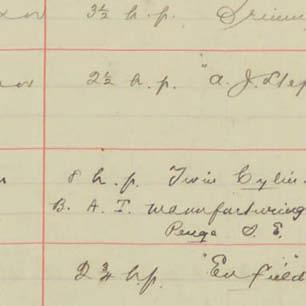 3½ h.p.
2½ h.p. "A. J. Step
8 h.p. Twin Cylin
B. A. T. manufacturing
Penge S. E.
2¾ h.p. "Enfield